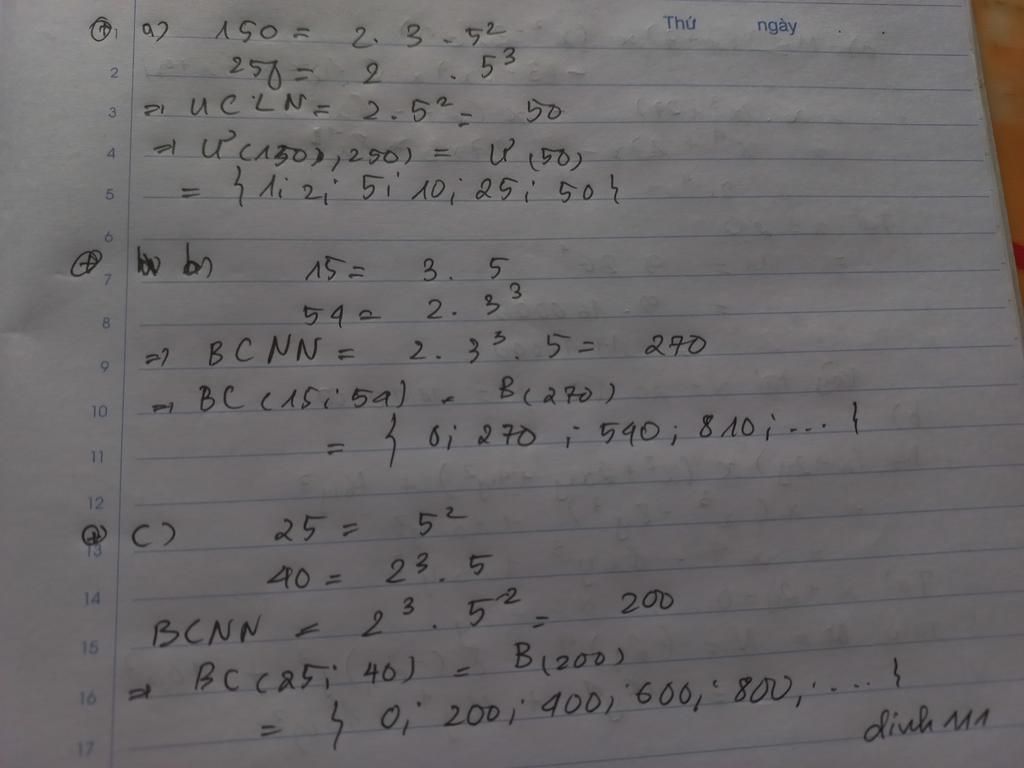 Thứ ngày
1 a) 150 = 2 . 3 . 5²
2 250 = 2 . 5³
3 => UCLN = 2 . 5² = 50
4 => Ư(150, 250) = Ư(50)
5 = { 1; 2; 5; 10; 25; 50 }
6
7 b) 15 = 3 . 5
8 54 = 2 . 3³
9 => BCNN = 2 . 3³ . 5 = 270
10 => BC(15; 54) = B(270)
11 = { 0; 270; 540; 810; ... }
12
13 c) 25 = 5²
14 40 = 2³ . 5
15 BCNN = 2³ . 5² = 200
16 => BC(25; 40) = B(200)
17 = { 0; 200; 400; 600; 800; .... }
dinh 111